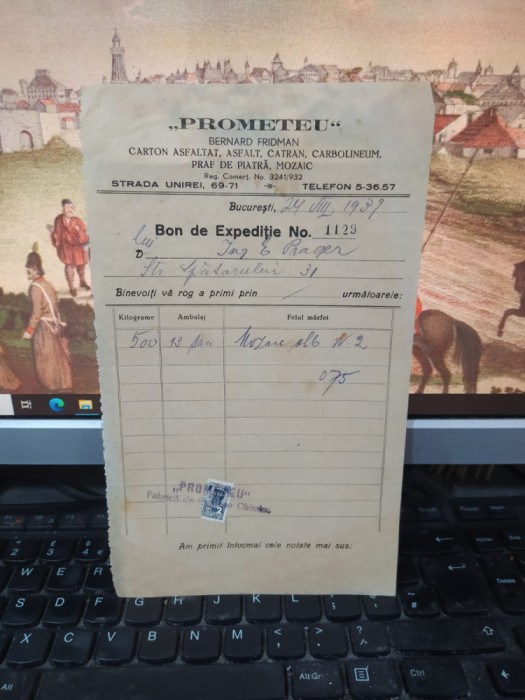 „PROMETEU“
BERNARD FRIDMAN
CARTON ASFALTAT, ASFALT, CATRAN, CARBOLINEUM,
PRAF DE PIATRĂ, MOZAIC
Reg. Comerț. No. 3241/932
STRADA UNIREI, 69-71 TELEFON 5-36.57
București, 24 VII 1937
Bon de Expediție No. 1129
lui
D Ing E Prager
Str Spătarului 31
Binevoiți vă rog a primi prin / următoarele:
Kilograme Ambalaj Felul mărfei
500 13 Mozaic alb N 2
075
„PROMETEU“
Fabrica de
Am primit întocmai cele notate mai sus:
2 3 4
W E R
S D F G H J K L
X C V B N M
Alt Gr Ctrl
Alt
Home
End